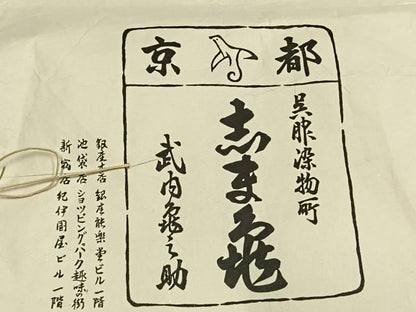 京都
呉服染物所
志ま亀
武内亀之助
銀座本店 銀座能楽堂ビル一階
池袋店 ショッピングパーク趣味の街
新宿店 紀伊國屋ビル一階